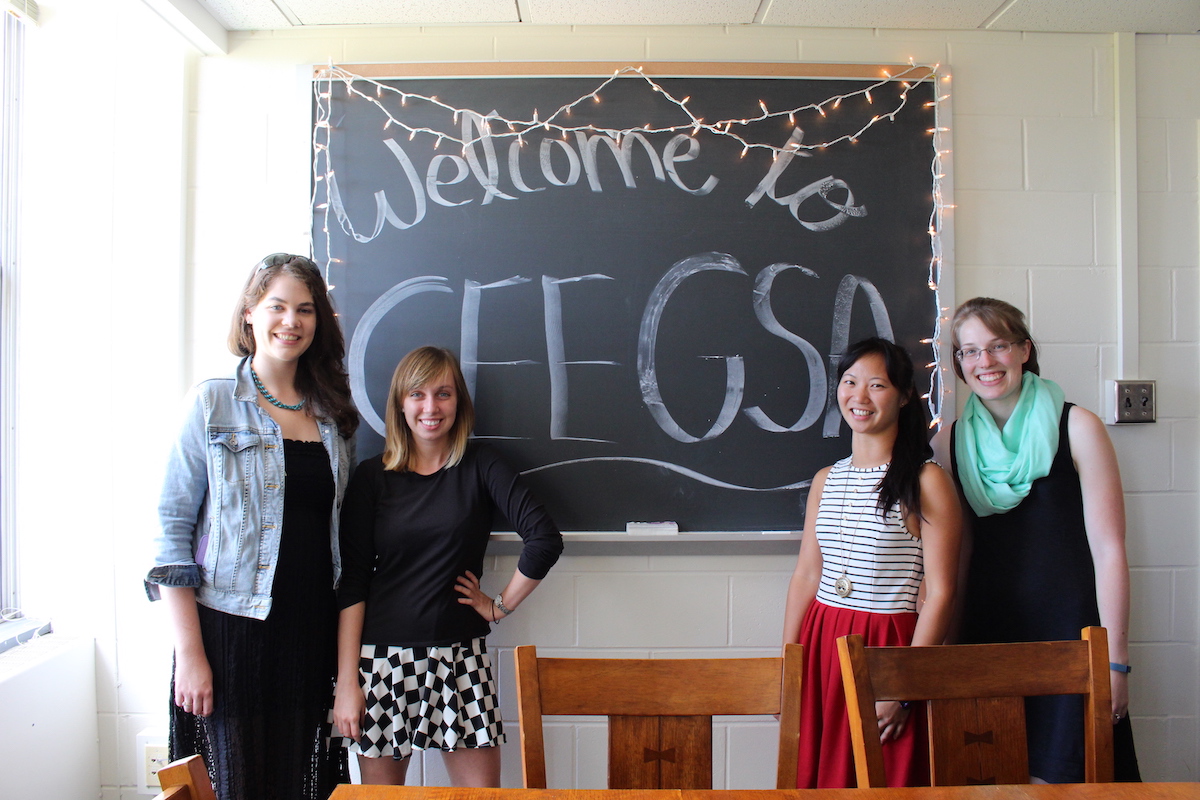 Welcome to
CEEGSA